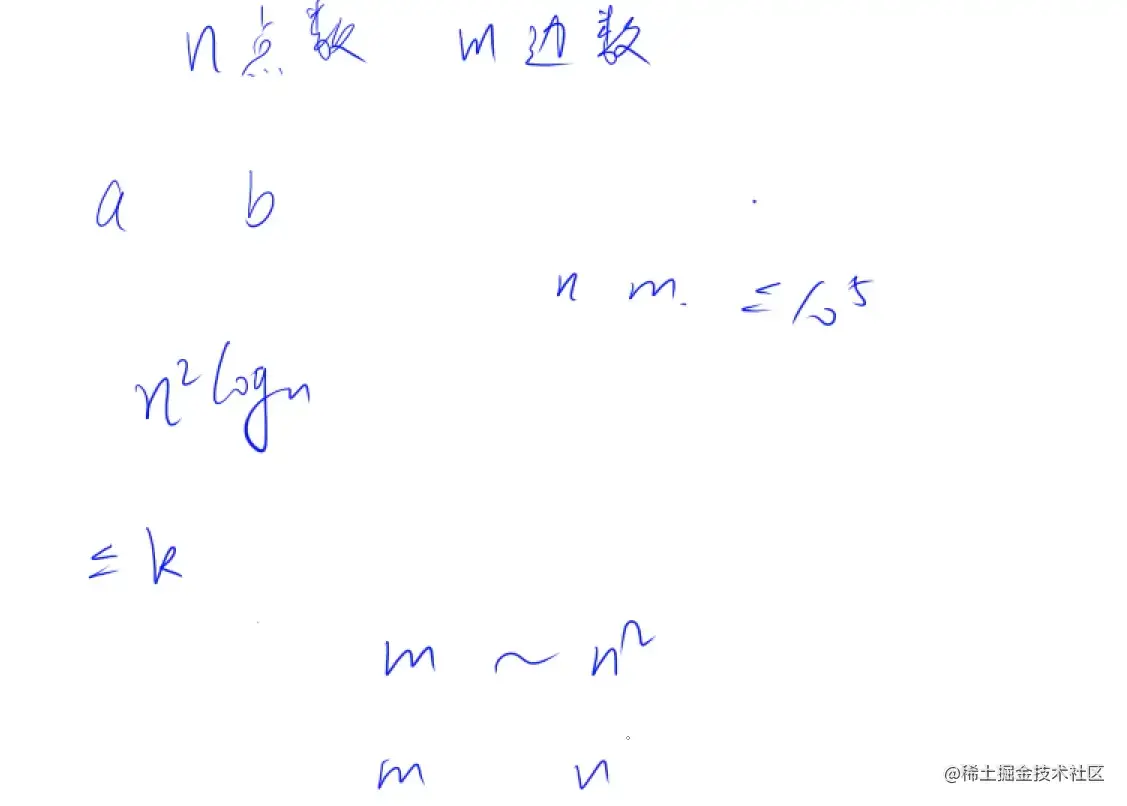 n 点数 m 边数
a b
n m. ≤ 10⁵
n² log n
≤ k
m ~ n²
m n
@稀土掘金技术社区